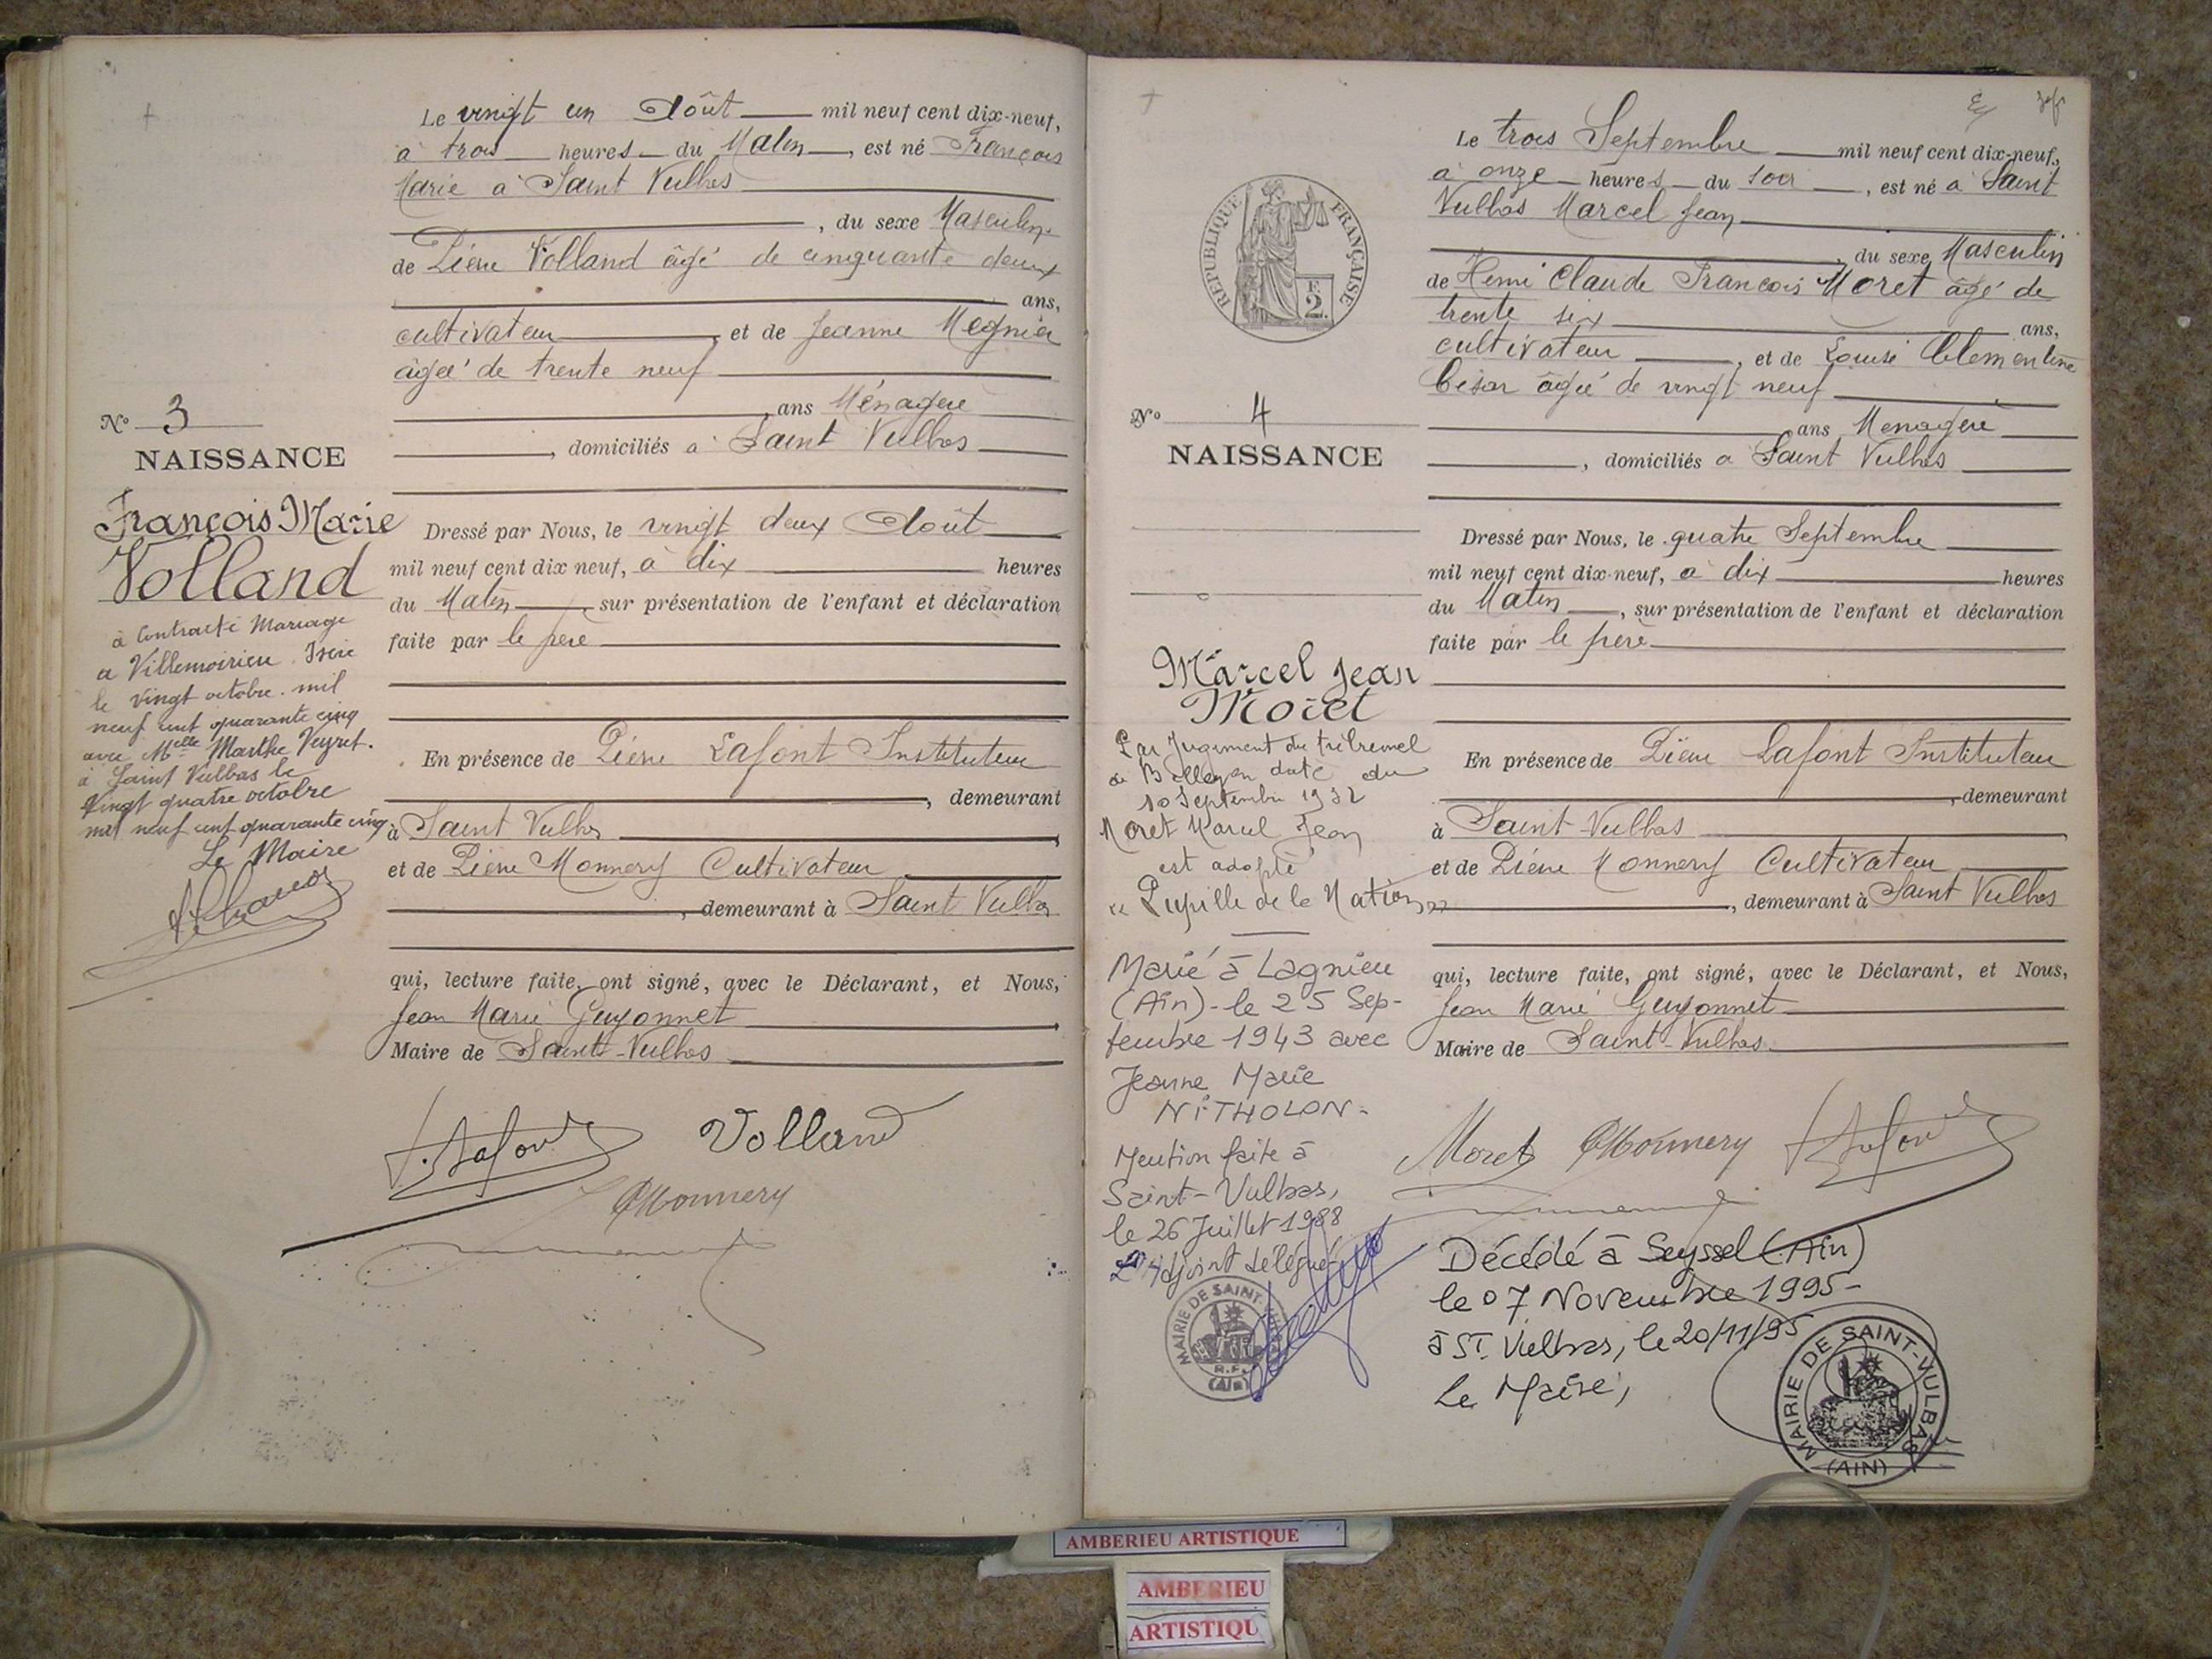 Le vingt un Août mil neuf cent dix-neuf,
à trois heures du Matin, est né François
Marie à Saint Vulbas
, du sexe Masculin
de Pierre Volland âgé de cinquante deux
ans,
cultivateur, et de Jeanne Megnier
âgée de trente neuf
, ans Ménagère
, domiciliés à Saint Vulbas
Nº 3
NAISSANCE
François Marie
Volland
à Contracté Mariage
à Villemoirieu Isère
le vingt octobre mil
neuf cent quarante cinq
avec Melle Marthe Veyret.
à Saint Vulbas le
Vingt quatre octobre
mil neuf cent quarante cinq
Le Maire
Dressé par Nous, le vingt deux Août
mil neuf cent dix neuf, à dix heures
du Matin, sur présentation de l'enfant et déclaration
faite par le père
En présence de Pierre Lafont Instituteur
, demeurant
à Saint Vulbas
et de Pierre Monnery Cultivateur
, demeurant à Saint Vulbas
qui, lecture faite, ont signé, avec le Déclarant, et Nous,
Jean Marie Guyonnet
Maire de Saint-Vulbas
Lafont Volland
Monnery
Le trois Septembre mil neuf cent dix-neuf,
à onze heures du soir, est né à Saint
Vulbas Marcel Jean
, du sexe Masculin
de Henri Claude François Moret âgé de
trente six ans,
cultivateur, et de Louise Clementine
César âgée de vingt neuf
, ans Menagère
, domiciliés à Saint Vulbas
RÉPUBLIQUE FRANÇAISE
F.
2.
Nº 4
NAISSANCE
Marcel Jean
Moret
Par Jugement du tribunal
de Belley en date du
10 Septembre 1932
Moret Marcel Jean
est adopté
"Pupille de la Nation"
Marié à Lagnieu
(Ain) - le 25 Sep-
tembre 1943 avec
Jeanne Marie
NITHOLON -
Mention faite à
Saint-Vulbas,
le 26 Juillet 1988
L'Adjoint délégué
MAIRIE DE SAINT-VULBAS
R.F.
(Ain)
Dressé par Nous, le quatre Septembre
mil neuf cent dix-neuf, à dix heures
du Matin, sur présentation de l'enfant et déclaration
faite par le père
En présence de Pierre Lafont Instituteur
, demeurant
à Saint-Vulbas
et de Pierre Monnery Cultivateur
, demeurant à Saint Vulbas
qui, lecture faite, ont signé, avec le Déclarant, et Nous,
Jean Marie Guyonnet
Maire de Saint-Vulbas
Moret Monnery Lafont
Décédé à Seyssel (Ain)
le 07 Novembre 1995 -
à ST. Vulbas, le 20/11/95
Le Maire,
MAIRIE DE SAINT-VULBAS
(AIN)
AMBERIEU ARTISTIQUE
AMBERIEU
ARTISTIQU